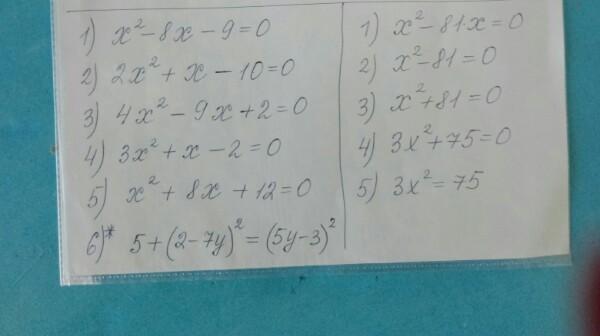 1) x² - 8x - 9 = 0
2) 2x² + x - 10 = 0
3) 4x² - 9x + 2 = 0
4) 3x² + x - 2 = 0
5) x² + 8x + 12 = 0
6)* 5 + (2 - 7y)² = (5y - 3)²
1) x² - 81x = 0
2) x² - 81 = 0
3) x² + 81 = 0
4) 3x² + 75 = 0
5) 3x² = 75